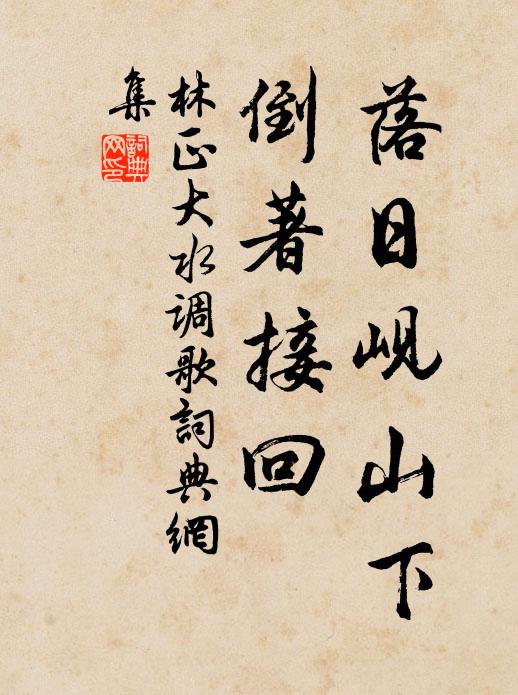 落日岘山下
倒著接回
林正大水调歌詞典網
集
詞典网印